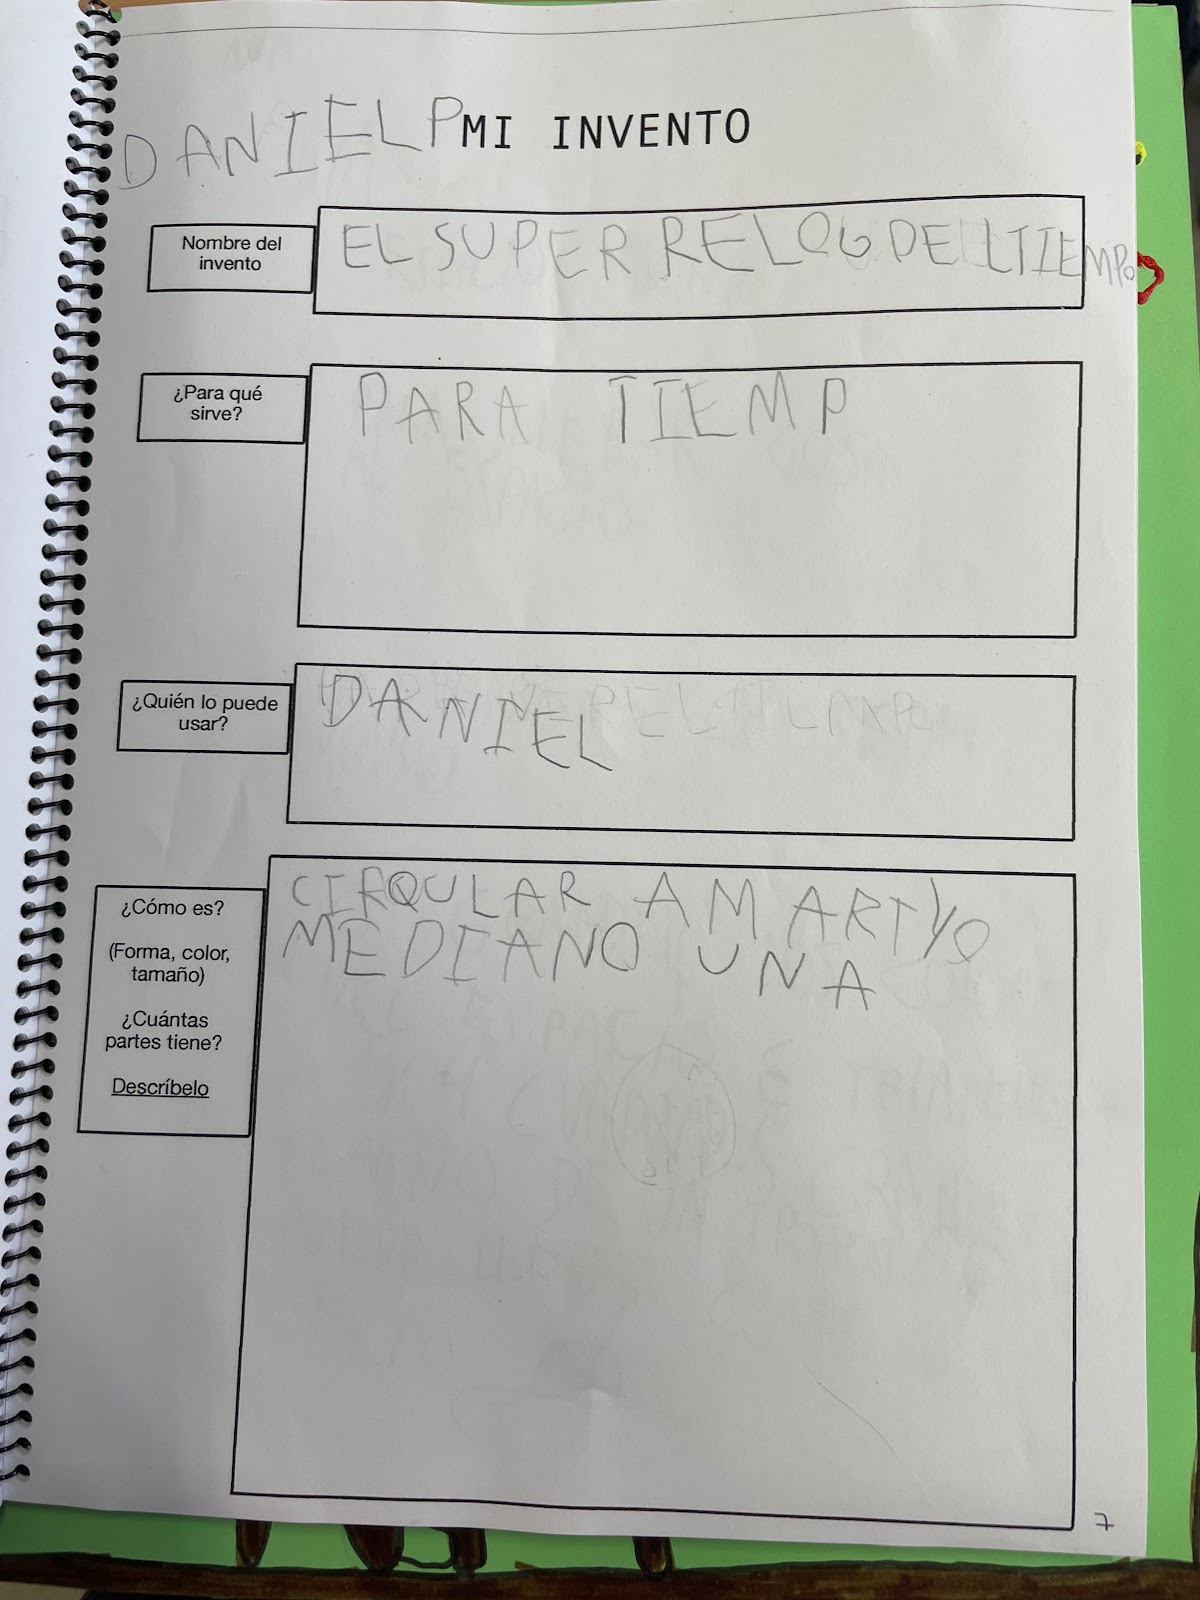 DANIEL P MI INVENTO
Nombre del
invento
EL SUPER RELOG DEL TIEMPO
¿Para qué
sirve?
PARA TIEMP
¿Quién lo puede
usar?
DANIEL
¿Cómo es?
(Forma, color,
tamaño)
¿Cuántas
partes tiene?
Descríbelo
CIRQULAR AMARIYO
MEDIANO UNA
7